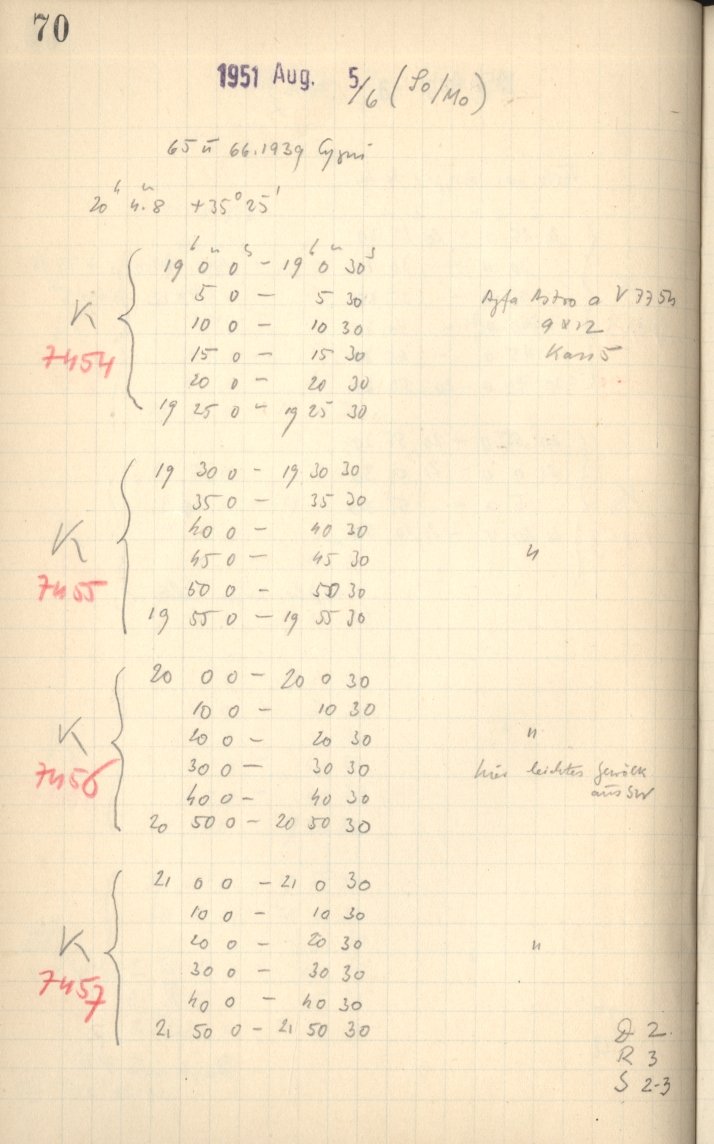 70
1951 Aug. 5/6 (So/Mo)
65 u 66.1939 Cygni
20h 4m.8 +35° 25'
19h 0m 0s - 19h 0m 30s
5 0 - 5 30
K 10 0 - 10 30
7454 15 0 - 15 30
20 0 - 20 30
19 25 0 - 19 25 30
Agfa Astro a V 7754
9x12
Kass 5
19 30 0 - 19 30 30
35 0 - 35 30
K 40 0 - 40 30
45 0 - 45 30 "
7455 50 0 - 50 30
19 55 0 - 19 55 30
20 0 0 - 20 0 30
10 0 - 10 30
K 20 0 - 20 30 "
7456 30 0 - 30 30 hier leichtes Gewölk
40 0 - 40 30 aus SW
20 50 0 - 20 50 30
21 0 0 - 21 0 30
10 0 - 10 30
K 20 0 - 20 30 "
7457 30 0 - 30 30
40 0 - 40 30
21 50 0 - 21 50 30
D 2
R 3
S 2-3